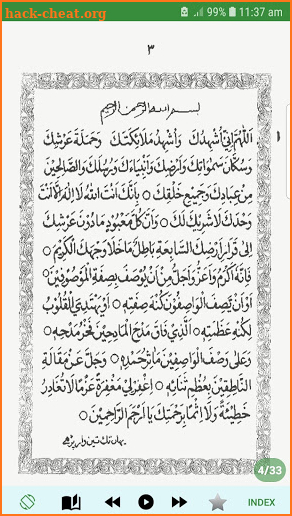 hack-cheat.org
99% 11:37 am
٣
بسم الله الرحمن الرحيم
اَللّٰهُمَّ اِنِّيْ اُشْهِدُكَ وَاُشْهِدُ مَلَائِكَتَكَ وَحَمَلَةَ عَرْشِكَ
وَسُكَّانَ سَمٰوَاتِكَ وَاَرْضِكَ وَاَنْبِيَآءَكَ وَرُسُلَكَ وَالصَّالِحِيْنَ
مِنْ عِبَادِكَ وَجَمِيْعَ خَلْقِكَ ○ بِاَنَّكَ اَنْتَ اللهُ لَا اِلٰهَ اِلَّا اَنْتَ
وَحْدَكَ لَا شَرِيْكَ لَكَ ○ وَاَنَّ كُلَّ مَعْبُوْدٍ مَادُوْنَ عَرْشِكَ
اِلٰى قَرَارِ اَرْضِكَ السَّابِعَةِ بَاطِلٌ مَاخَلَا وَجْهَكَ الْكَرِيْمَ ○
فَاِنَّهٗ اَكْرَمُ وَاَعَزُّ وَاَجَلُّ مِنْ اَنْ يُوْصَفَ بِصِفَةِ الْمَوْصُوْفِيْنَ ○
اَوْ اَنْ تَصِفَ الْوَاصِفُوْنَ كُنْهَ صِفَتِهٖ ○ اَوْ يَهْتَدِيَ الْقُلُوْبُ
لِكُنْهِ عَظَمَتِهٖ ○ اَلَّذِيْ فَاقَ مَدْحَ الْمَادِحِيْنَ فَخْرُ مَدْحِهٖ ○
وَعَلٰى وَصْفَ الْوَاصِفِيْنَ مَاٰثِرُ حَمْدِهٖ ○ وَجَلَّ عَنْ مَقَالَةِ
النَّاطِقِيْنَ بِعُظْمِ ثَنَائِهٖ ○ اِغْفِرْلِيْ مَغْفِرَةً عَزْمًا لَا تُغَادِرُ
خَطِيْئَةً وَلَا اِثْمًا بِرَحْمَتِكَ يَا اَرْحَمَ الرَّاحِمِيْنَ ○
یہاں تک تین وار پڑھے
4/33
INDEX